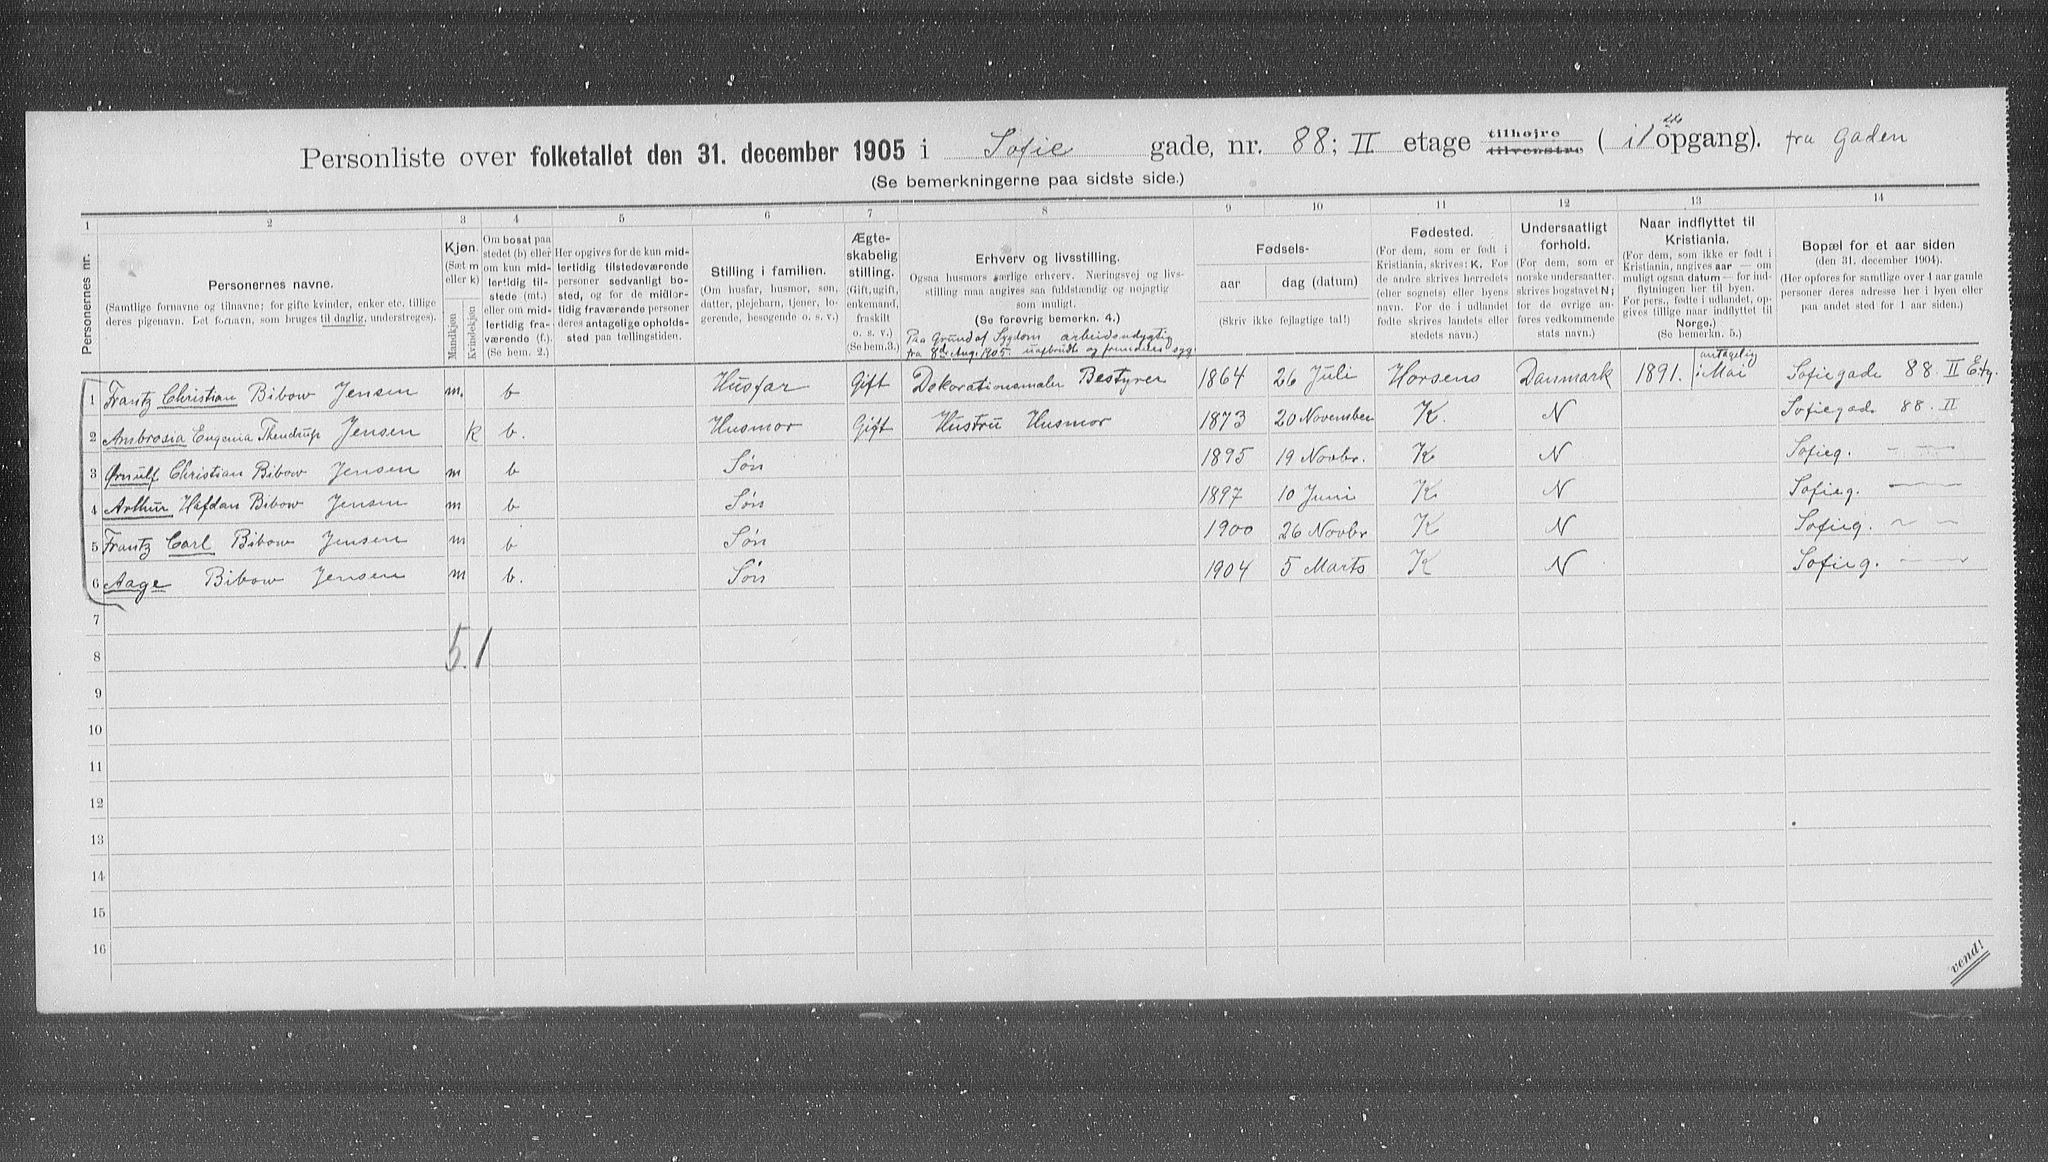 Personliste over folketallet den 31. december 1905 i Sofie gade, nr. 88; II etage tilhøjre tilvenstre ( i 1 opgang). fra Gaden
(Se bemerkningerne paa sidste side.)
1 2 3 4 5 6 7 8 9 10 11 12 13 14
Personernes nr.
Personernes navne.
(Samtlige fornavne og tilnavne; for gifte kvinder, enker etc. tillige
deres pigenavn. Det fornavn, som bruges til daglig, understreges).
Kjøn.
(Sæt m
eller k)
Mandkjøn
Kvindekjøn
Om bosat paa
stedet (b) eller
om kun mid-
lertidig til-
stede (mt.)
eller om mid-
lertidig fra-
værende (f.).
(Se bem. 2.)
Her opgives for de kun mid-
lertidig tilstedeværende
personer sedvanligt bo-
sted, og for de midler-
tidig fraværende personer
deres antagelige opholds-
sted paa tællingstiden.
Stilling i familien.
(Om husfar, husmor, søn,
datter, plejebarn, tjener, lo-
gerende, besøgende o. s. v.)
Ægte-
skabelig
stilling.
(Gift, ugift,
enkemand,
fraskilt
o. s. v.)
(Se bem.3.)
Erhverv og livsstilling.
Ogsaa husmors særlige erhverv. Næringsvej og livs-
stilling maa angives saa fuldstændig og nøjagtig
som muligt.
(Se forøvrig bemerkn. 4.)
Paa Grund af Sygdom arbeidsudygtig
fra 8de Aug. 1905. uafbrudt og fremdeles syg.
Fødsels-
aar dag (datum)
(Skriv ikke fejlagtige tal!)
Fødested.
(For dem, som er født i
Kristiania, skrives: K. For
de andre skrives herredets
(eller sognets) eller byens
navn. For de i udlandet
fødte skrives landets eller
stedets navn.)
Undersaatligt
forhold.
(For norske undersaatter
skrives bogstavet N;
for de øvrige an-
føres vedkommende
stats navn.)
Naar indflyttet til
Kristiania.
(For dem, som ikke er født i
Kristiania, angives aar — om
muligt ogsaa datum — for ind-
flytningen her til byen.
For pers., fødte i udlandet, op-
gives tillige naar indflyttet til
Norge.)
(Se bemerkn. 5.)
Bopæl for et aar siden
(den 31. december 1904).
(Her opføres for samtlige over 1 aar gamle
personer deres adresse her i byen eller
paa andet sted for 1 aar siden.)
1 Frantz Christian Bibow Jensen m. b Husfar Gift Dekorationsmaler Bestyrer 1864 26 Juli Horsens Danmark 1891. antagelig i Mai Sofiegade 88 II Etg.
2 Ambrosia Eugenia Thendrup Jensen k b. Husmor Gift Hustru Husmor 1873 20 November K. N Sofiegade 88. II
3 Ørnulf Christian Bibow Jensen m b Søn 1895 19 Novbr. K N Sofieg. — —
4 Arthur Hafdan Bibow Jensen m b Søn 1897 10 Juni K N Sofieg. —
5 Frantz Carl Bibow Jensen m b Søn 1900 26 Novbr K N Sofieg. — —
6 Aage Bibow Jensen m b. Søn 1904 5 Marts K N Sofieg. — —
7
8 5. 1
9
10
11
12
13
14
15
16
vend!